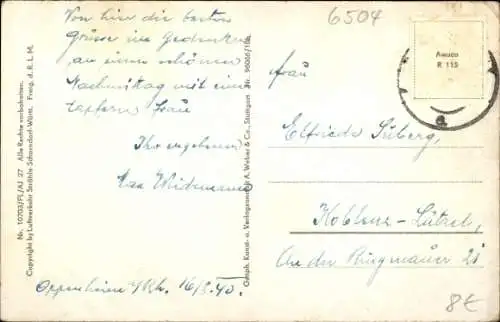 Nr. 10703/FL/AJ 27 Alle Rechte vorbehalten. Freig. d. R. L. M.
Copyright by Luftverkehr Strähle Schorndorf-Württ.
Von hier die besten
Grüsse im Gedenken
an einen schönen
Nachmittag mit einer
tapfern Frau
Ihr ergebener
Max Widemann
Oppenheim a/Rh. 16/5.40.
Graph. Kunst- u. Verlagsanstalt A. Weber & Co., Stuttgart Nr. 96006/15b
6504
Awuco
R 115
Frau
Elfriede
Koblenz-Lützel,
An der Ringmauer 21
8€